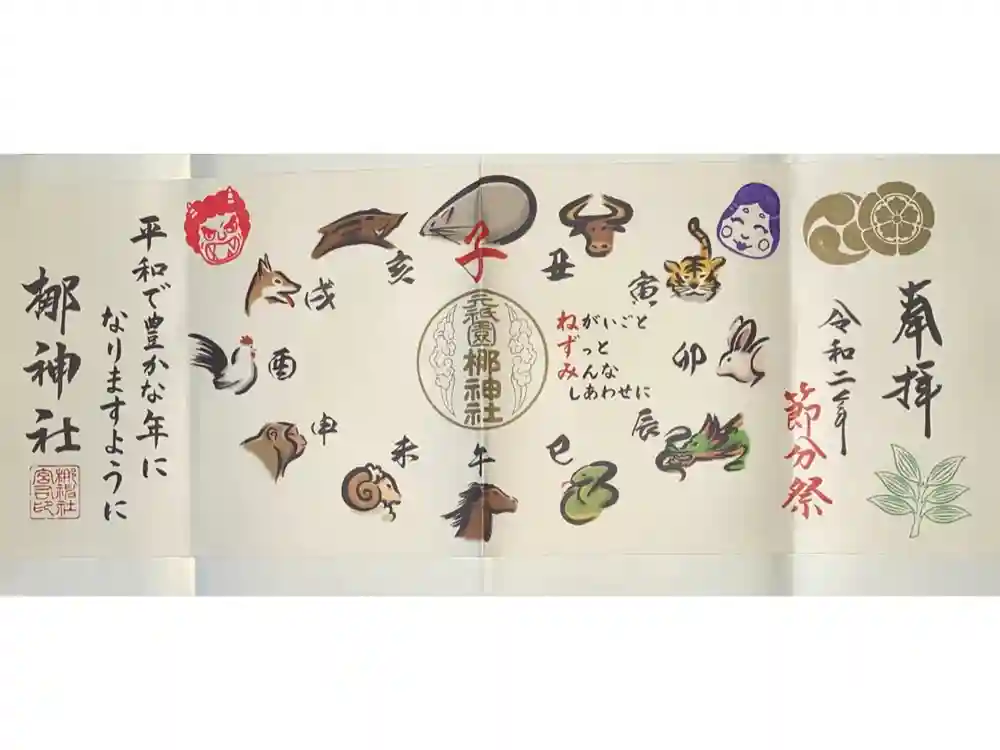 奉拝
令和二年
節分祭
子
丑
寅
卯
辰
巳
午
未
申
酉
戌
亥
元祇園
梛神社
ねがいごと
ずっと
みんな
しあわせに
平和で豊かな年に
なりますように
梛神社
梛神社
宮司印